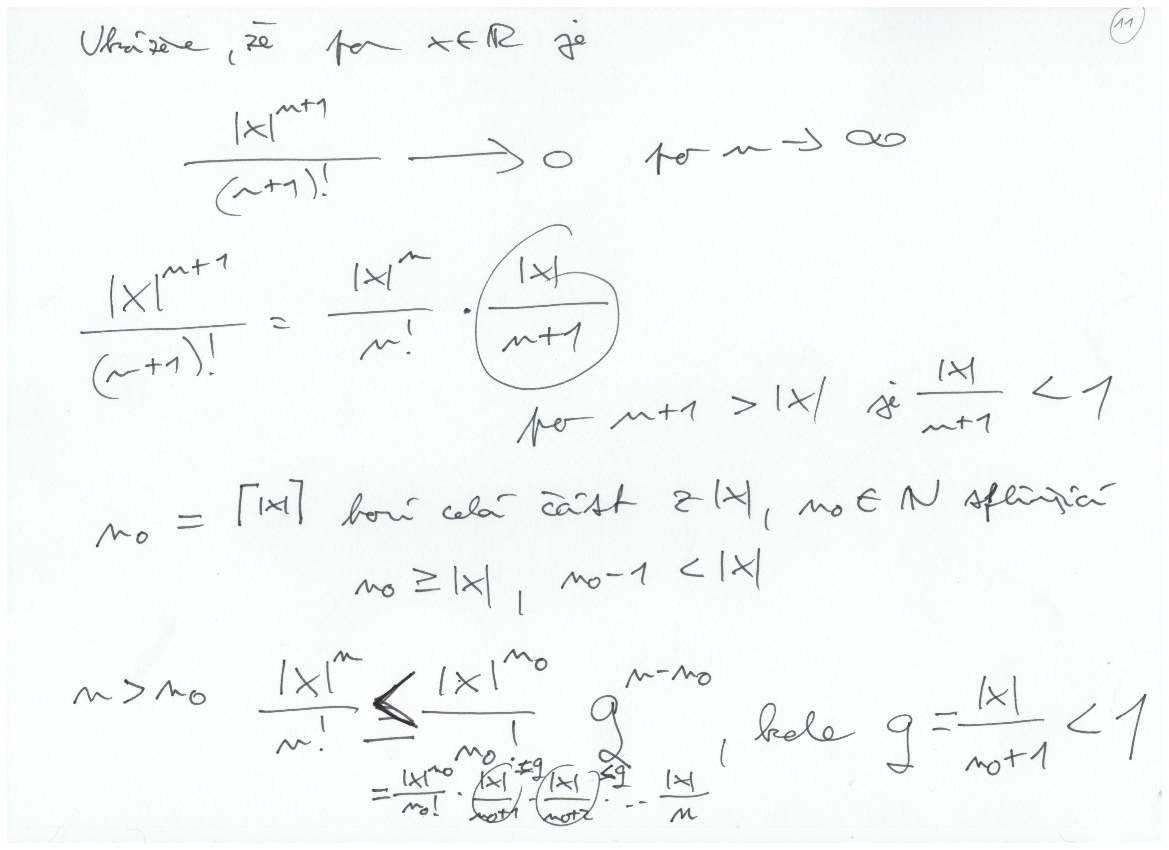 11
Ukážeme, že pro x ∈ ℝ je
|x|^{n+1} / (n+1)! ⟶ 0 pro n → ∞
|x|^{n+1} / (n+1)! = |x|^n / n! · |x| / n+1
pro n+1 > |x| je |x| / n+1 < 1
n₀ = ⌈|x|⌉ horní celá část z |x|, n₀ ∈ N splňující
n₀ ≥ |x|, n₀-1 < |x|
n > n₀ |x|^n / n! ≤ |x|^{n₀} / n₀! q^{n-n₀}, kde q = |x| / n₀+1 < 1
= |x|^{n₀} / n₀! · |x| / n₀+1 ≤q · |x| / n₀+2 ≤q · ... |x| / n